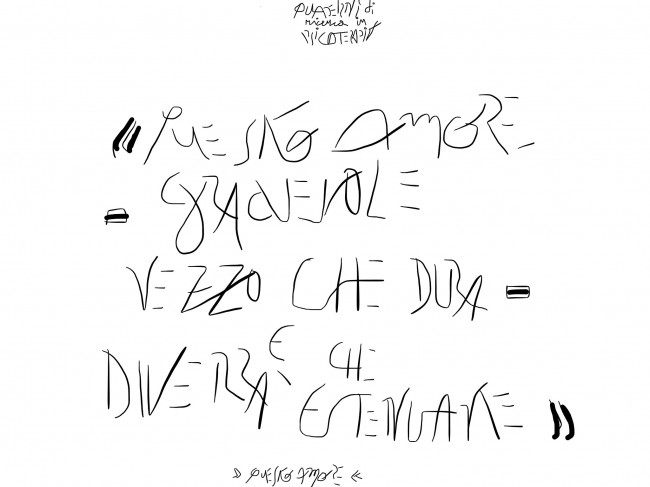 QUADERNI di
ricerca in
PSICOTERAPIA
« QUESTO AMORE
= GRADEVOLE
VEZZO CHE DURA =
DIVERRÀ E CHE
ESTENUANTE »
» QUESTO AMORE «